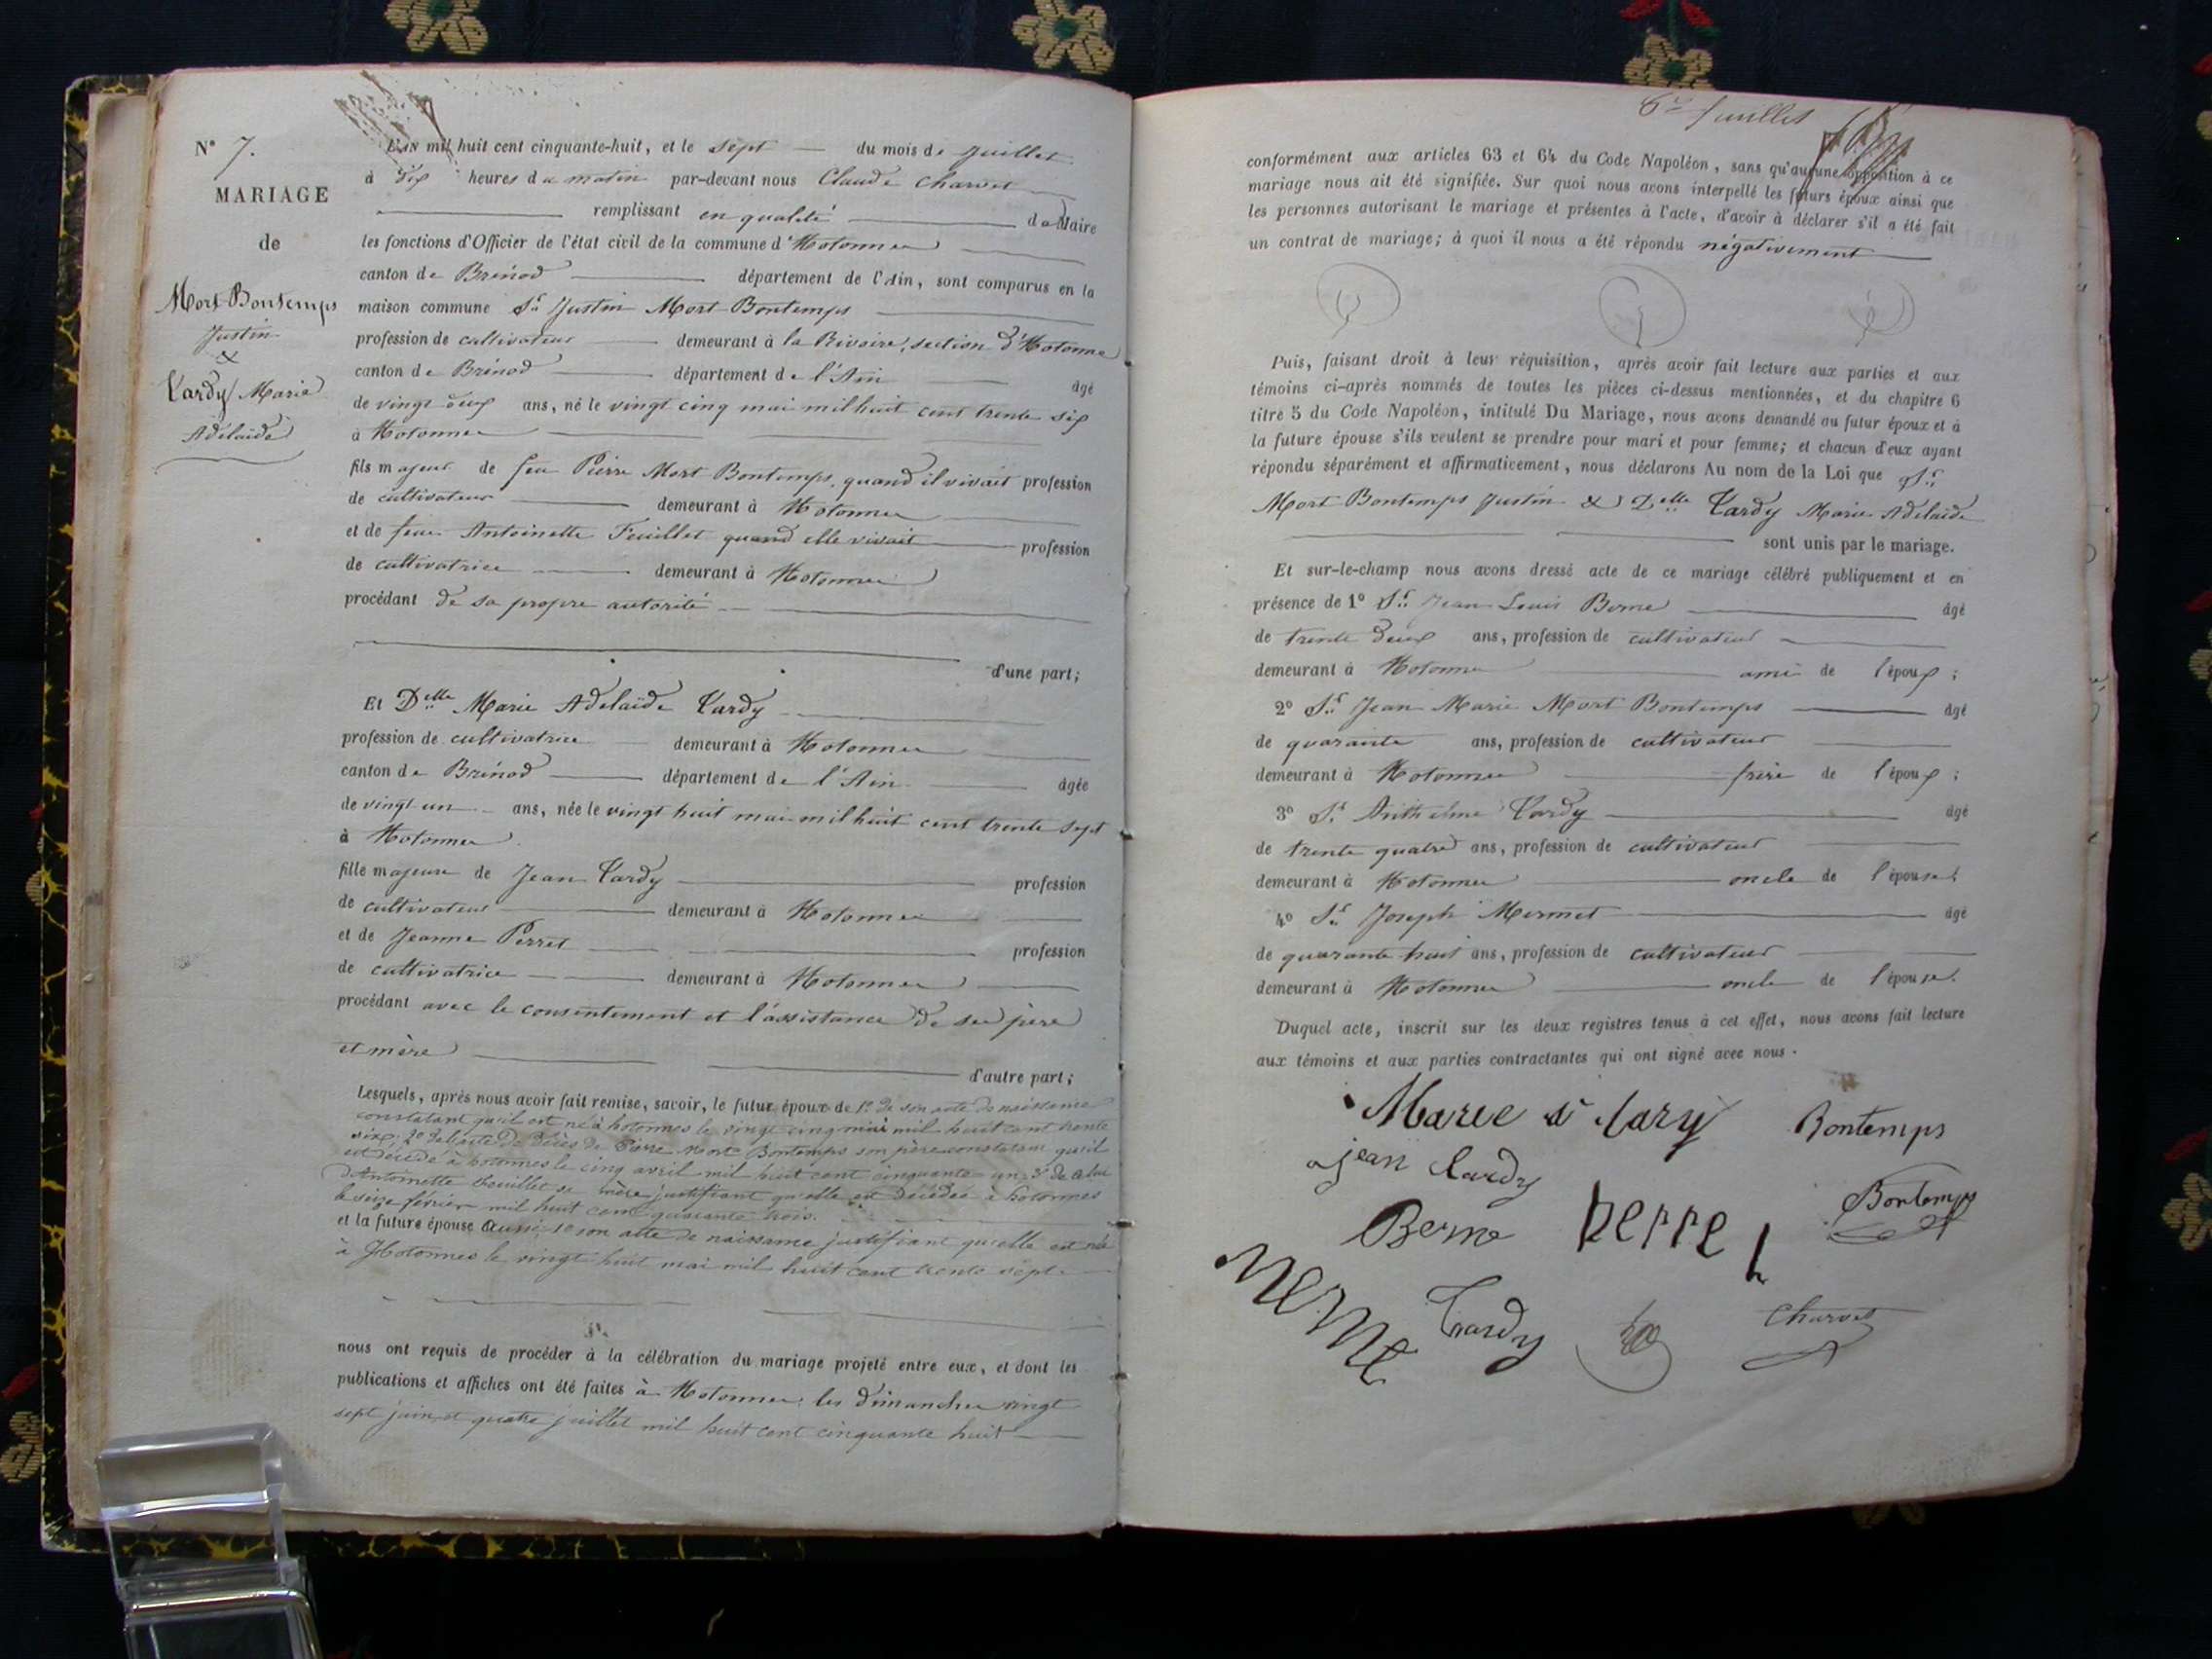 N° 7.
MARIAGE
de
Mort Bontemps
Justin
&
Tardy Marie
Adelaïde
L'an mil huit cent cinquante-huit, et le sept du mois de juillet
à dix heures du matin par-devant nous Claude Charvet
remplissant en qualité de Maire
les fonctions d'Officier de l'état civil de la commune d'Hotonnes
canton de Brénod département de l'Ain, sont comparus en la
maison commune Sr Justin Mort Bontemps
profession de cultivateur demeurant à la Rivoire, section d'Hotonne
canton de Brénod département de l'Ain âgé
de vingt deux ans, né le vingt cinq mai mil huit cent trente six
à Hotonnes
fils majeur de feu Pierre Mort Bontemps, quand il vivait profession
de cultivateur demeurant à Hotonnes
et de feue Antoinette Feuillet quand elle vivait profession
de cultivatrice demeurant à Hotonnes
procédant de sa propre autorité
d'une part;
Et Delle Marie Adelaïde Tardy
profession de cultivatrice demeurant à Hotonnes
canton de Brénod département de l'Ain âgée
de vingt un ans, née le vingt huit mai mil huit cent trente sept
à Hotonnes
fille majeure de Jean Tardy profession
de cultivateur demeurant à Hotonnes
et de Jeanne Perret profession
de cultivatrice demeurant à Hotonnes
procédant avec le consentement et l'assistance de ses père
et mère
d'autre part;
Lesquels, après nous avoir fait remise, savoir, le futur époux de 1° de son acte de naissance
constatant qu'il est né à hotonnes le vingt cinq mai mil huit cent trente
six; 2° de l'acte de décès de Pierre Mort Bontemps son père constatant qu'il
est décédé à hotonnes le cinq avril mil huit cent cinquante un; 3° de celui
d'Antoinette feuillet sa mère justifiant qu'elle est décédée à hotonnes
le seize février mil huit cent quarante trois.
et la future épouse aussi, 1° son acte de naissance justifiant qu'elle est née
à Hotonnes le vingt huit mai mil huit cent trente sept
nous ont requis de procéder à la célébration du mariage projeté entre eux, et dont les
publications et affiches ont été faites à Hotonnes, les dimanches vingt
sept juin et quatre juillet mil huit cent cinquante huit
6e feuillet
conformément aux articles 63 et 64 du Code Napoléon, sans qu'aucune opposition à ce
mariage nous ait été signifiée. Sur quoi nous avons interpellé les futurs époux ainsi que
les personnes autorisant le mariage et présentes à l'acte, d'avoir à déclarer s'il a été fait
un contrat de mariage; à quoi il nous a été répondu négativement
Puis, faisant droit à leur réquisition, après avoir fait lecture aux parties et aux
témoins ci-après nommés de toutes les pièces ci-dessus mentionnées, et du chapitre 6
titre 5 du Code Napoléon, intitulé Du Mariage, nous avons demandé au futur époux et à
la future épouse s'ils veulent se prendre pour mari et pour femme; et chacun d'eux ayant
répondu séparément et affirmativement, nous déclarons Au nom de la Loi que Sr
Mort Bontemps Justin & Delle Tardy Marie Adelaïde
sont unis par le mariage.
Et sur-le-champ nous avons dressé acte de ce mariage célébré publiquement et en
présence de 1° Sr Jean Louis Berne âgé
de trente deux ans, profession de cultivateur
demeurant à Hotonnes ami de l'époux;
2° Sr Jean Marie Mort Bontemps âgé
de quarante ans, profession de cultivateur
demeurant à Hotonnes frère de l'époux;
3° Sr Anthelme Tardy âgé
de trente quatre ans, profession de cultivateur
demeurant à Hotonnes oncle de l'épouse.
4° Sr Joseph Mermet âgé
de quarante huit ans, profession de cultivateur
demeurant à Hotonnes oncle de l'épouse.
Duquel acte, inscrit sur les deux registres tenus à cet effet, nous avons fait lecture
aux témoins et aux parties contractantes qui ont signé avec nous.
Marie a tary Bontemps
jean tardy
Bontemps
Berne perret
Tardy
Charvet